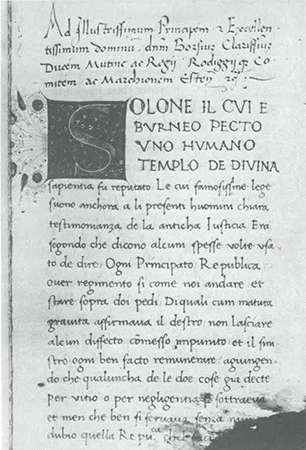 Ad Illustrissimum Principem & Excellen
tissimum dominū dnm Borsiū Clarissiū
Ducem Mutine ac Regij Rodigijq Co
mitem ac Marchionem Esteñ
SOLONE IL CUI E
BURNEO PECTO
UNO HUMANO
TEMPLO DE DIVINA
sapientia fu reputato Le cui famosissime lege
suono anchora a li presenti huomini chiara
testimonanza de la anticha Iusticia Era
segondo che dicono alcum spesse volte usa
to de dire: Ogni Principato Republica
over regimento si come noi andare et
stare sopra doi pedi. Di quali cum matura
gravita affirmava il destro non lasciare
alcun diffecto cōmesso impunito et il sini
stro ogni ben facto remunerare: agiungen
do che qualuncha de le doe cose gia decte
per vitio o per negligentia sottraeva
et men che ben si servava senza
dubio quella Repu. che